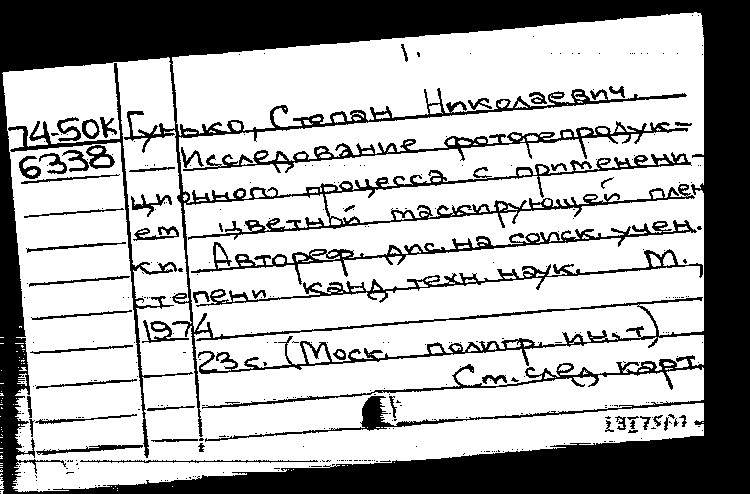 1.
74-50К Гунько, Степан Николаевич.
6338 Исследование фоторепродук=
ционного процесса с применени-
ем цветной маскирующей плен
ки. Автореф. дис. на соиск. учен.
степени канд. техн. наук. М.,
1974.
23 с. (Моск. полигр. ин-т).
См. след. карт.